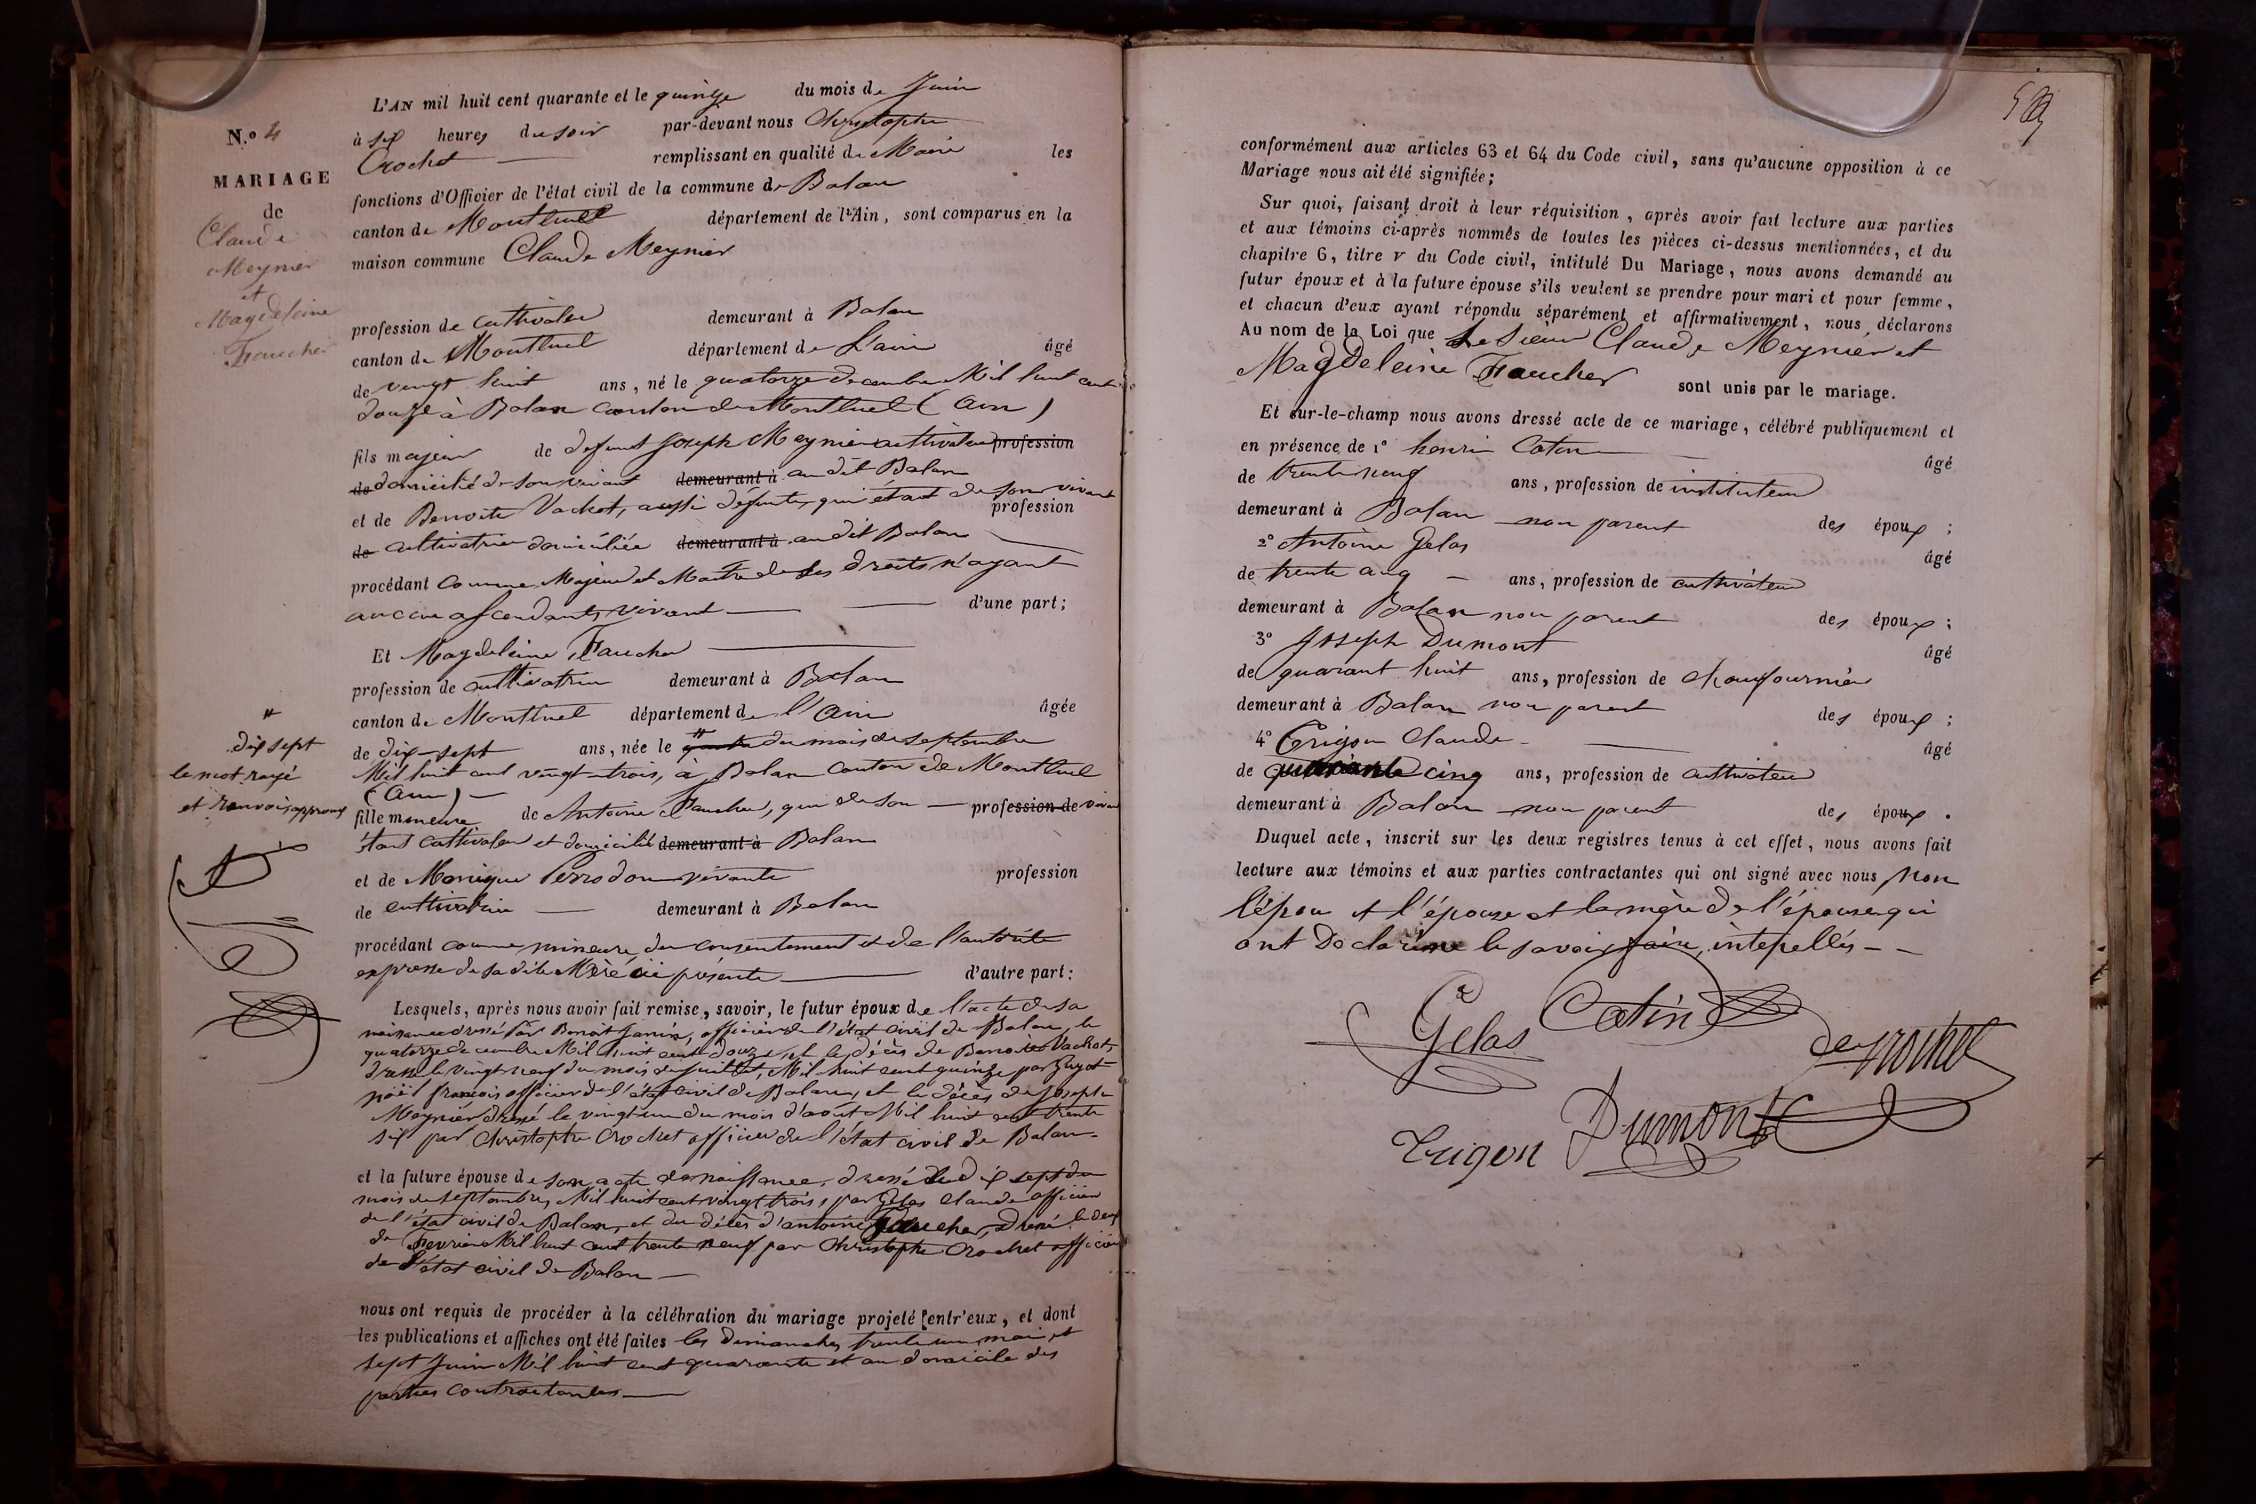 N.º 4
MARIAGE
de
Claude
Meynier
et
Magdeleine
Faucher
L'AN mil huit cent quarante et le quinze du mois de Juin
à six heures du soir par-devant nous Christophe
Crochet remplissant en qualité de Maire les
fonctions d'Officier de l'état civil de la commune de Balan
canton de Montluel département de l'Ain, sont comparus en la
maison commune Claude Meynier
profession de cultivateur demeurant à Balan
canton de Montluel département de L'ain âgé
de vingt huit ans, né le quatorze decembre Mil huit cent
douze à Balan canton de Montluel (Ain)
fils majeur de defunt Joseph Meynier cultivateur profession
de domicilié de son vivant demeurant à au dit Balan
et de Benoite Vachot, aussi défunte, qui étant de son vivant profession
de cultivatrice domiciliée demeurant à au dit Balan
procédant comme Majeur et Maitre de ses droits n'ayant
aucune ascendants vivant d'une part;
Et Magdeleine Faucher
profession de cultivatrice demeurant à Balan
canton de Montluel département de l'Ain âgée
de dix-sept ans, née le du mois de septembre
Mil huit cent vingt-trois, à Balan canton de Montluel
(Ain)
dix sept
le mot rayé
et renvois, approuvé
fille mineure de Antoine Faucher, qui de son profession de vivant
étant cultivateur et domicilié demeurant à Balan
et de Monique Perrodon vivante profession
de cultivatrice demeurant à Balan
procédant comme mineure, du consentement et de l'autorité
expresse de sa dite Mère ici présente d'autre part:
Lesquels, après nous avoir fait remise, savoir, le futur époux de l'acte de sa
naissance dressé par Benoit Janin, officier de l'état civil de Balan, le
quatorze decembre Mil huit cent douze, et le décès de Benoite Vachot,
dressé le vingt neuf du mois de juillet, Mil huit cent quinze par Guyot
noël françois officier de l'état civil de Balan, et le décès de Joseph
Meynier dressé le vingt un du mois d'août Mil huit cent trente
six par Christophe Crochet officier de l'état civil de Balan.
et la future épouse de son acte de naissance, dressé le dix sept du
mois de septembre, Mil huit cent vingt trois, par Gelas Claude officier
de l'état civil de Balan, et du décès d'antoine Faucher, dressé le deux
de Fevrier Mil huit cent trente neuf par Christophe Crochet officier
de l'état civil de Balan
nous ont requis de procéder à la célébration du mariage projeté entr'eux, et dont
les publications et affiches ont été faites les dimanches trente un mai, et
sept Juin Mil huit cent quarante et au domicile des
parties contractantes
conformément aux articles 63 et 64 du Code civil, sans qu'aucune opposition à ce
Mariage nous ait été signifiée;
Sur quoi, faisant droit à leur réquisition, après avoir fait lecture aux parties
et aux témoins ci-après nommés de toutes les pièces ci-dessus mentionnées, et du
chapitre 6, titre V du Code civil, intitulé Du Mariage, nous avons demandé au
futur époux et à la future épouse s'ils veulent se prendre pour mari et pour femme,
et chacun d'eux ayant répondu séparément et affirmativement, nous déclarons
Au nom de la Loi que Le Sieur Claude Meynier et
Magdeleine Faucher sont unis par le mariage.
Et sur-le-champ nous avons dressé acte de ce mariage, célébré publiquement et
en présence de 1º henri Catin âgé
de trente neuf ans, profession de instituteur
demeurant à Balan non parent des époux;
2º Antoine Gelas âgé
de trente cinq ans, profession de cultivateur
demeurant à Balan non parent des époux;
3º Joseph Dumont âgé
de quarant huit ans, profession de chaufournier
demeurant à Balan non parent des époux;
4º Trigon Claude âgé
de quarante cinq ans, profession de cultivateur
demeurant à Balan non parent des époux.
Duquel acte, inscrit sur les deux registres tenus à cet effet, nous avons fait
lecture aux témoins et aux parties contractantes qui ont signé avec nous, Non
l'époux et l'épouse et la mère de l'épouse qui
ont Declaré ne le savoir faire, intepellés
Gelas Catin
Crochet
Trigon Dumont